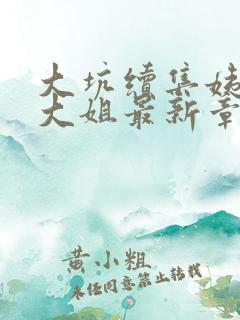 大坑续集姊
大姐最新章
黄小粗
未经同意禁止转载